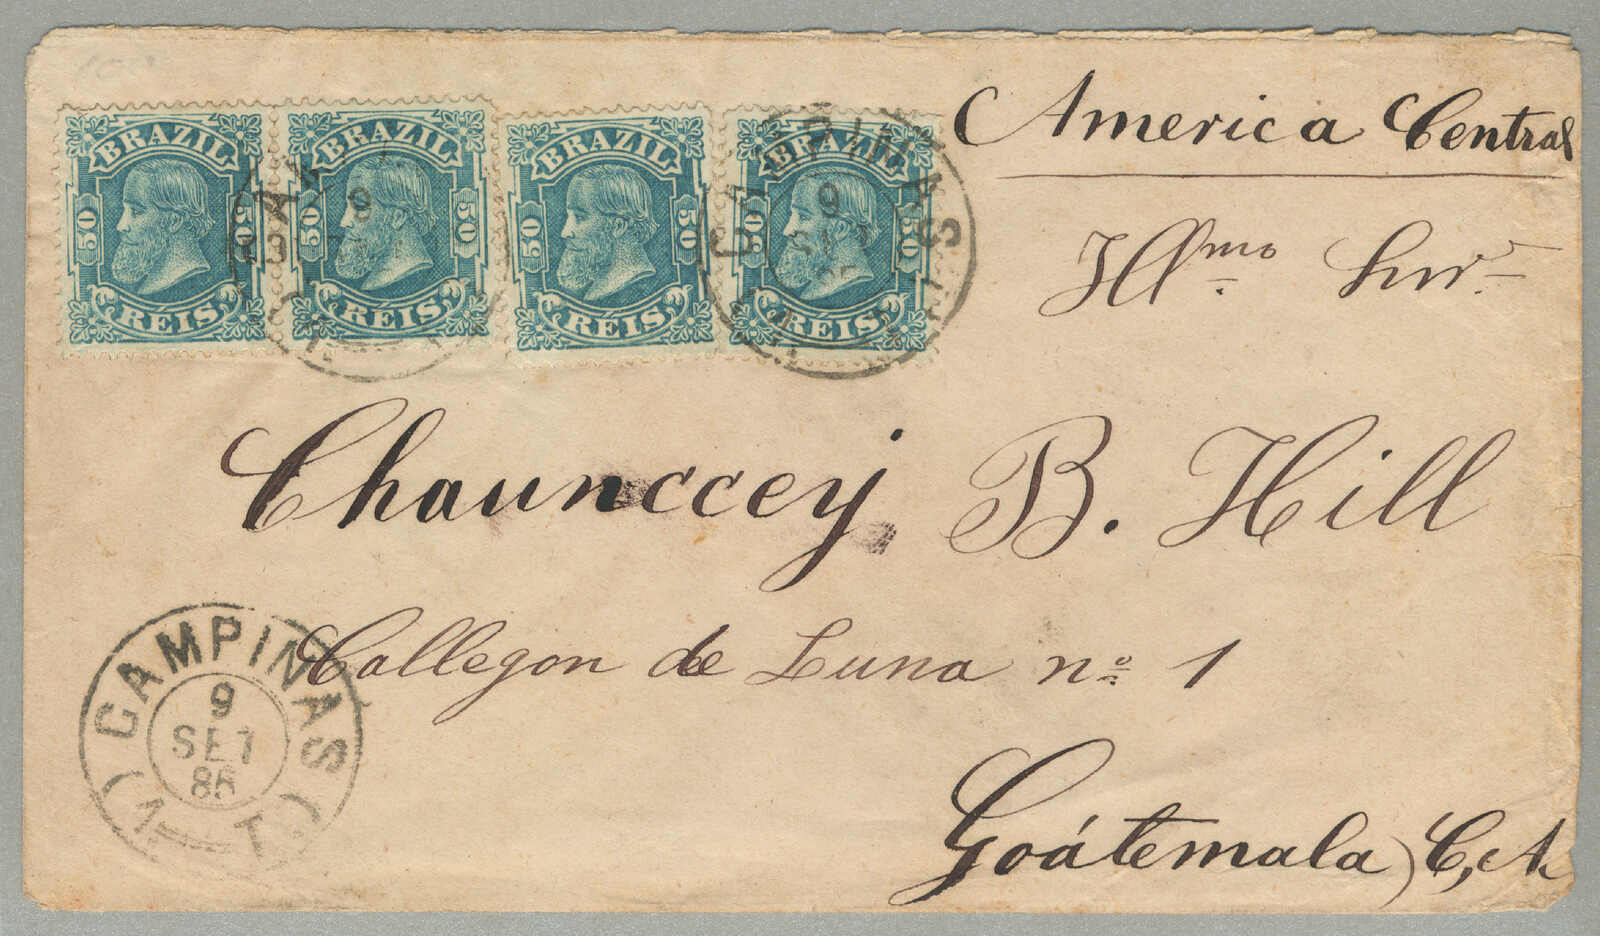 America Central
BRAZIL
50 50
REIS
BRAZIL
50 50
REIS
BRAZIL
50 50
REIS
BRAZIL
50 50
REIS
CAMPINAS
9
SET
Illmo Snr
Chaunccey B. Hill
Callegon de Luna no 1
Goátemala, C, A
CAMPINAS
9
SET
85
(1 T)